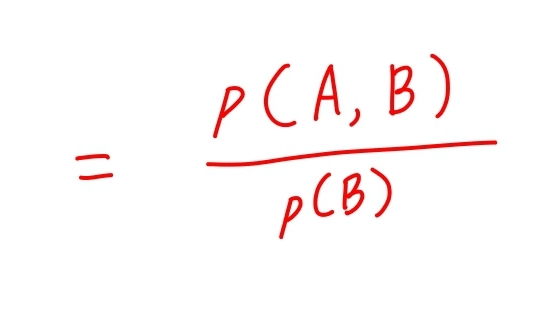 = P(A, B) / P(B)